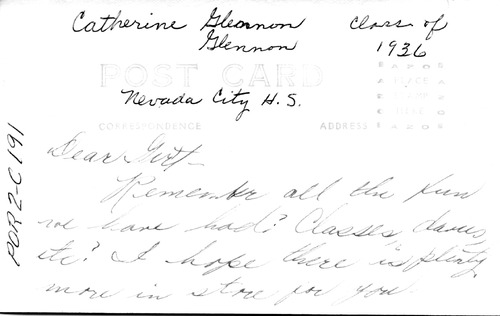 Catherine Glennon Class of
Glennon 1936
POST CARD
Nevada City H.S.
CORRESPONDENCE ADDRESS
POR2-C191
Dear Gert-
Remember all the fun
we have had? Classes, dances,
etc? I hope there is plenty
more in store for you.